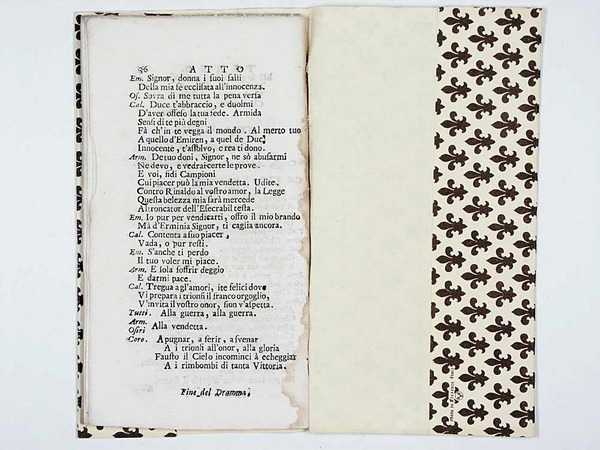 36 ATTO
Em. Signor, donna i suoi falli
Della mia fè ecclisata all'innocenza.
Os. Sovra di me tutta la pena versa
Cal. Duce t'abbraccio, e duolmi
D'aver offeso la tua fede. Armida
Sensi di te più degni
Fà ch'in te vegga il mondo. Al merto tuo
A quello d'Emiren, a quel de Duc,
Innocente, t'assolvo, e rea ti dono.
Arm. De tuo doni, Signor, ne sò abusarmi
Ne devo, e vedraicerte le prove.
E voi, fidi Campioni
Cui piacer può la mia vendetta. Udite.
Contro Rinaldo al vostro amor, la Legge
Questa belezza mia sarà mercede
Al troncator dell'Esecrabil testa.
Em. Io pur per vendicarti, offro il mio brando
Mà d'Erminia Signor, ti caglia ancora.
Cal. Contenta a suo piacer,
Vada, o pur resti.
Em. S'anche ti perdo
Il tuo voler mi piace.
Arm. E sola soffrir deggio
E darmi pace.
Cal. Tregua agl'amori, ite felici dove
Vi prepara i trionfi il franco orgoglio,
V'invita il vostro onor, sion v'aspetta.
Tutti. Alla guerra, alla guerra.
Arm.
Osiri Alla vendetta.
Coro. A pugnar, a ferir, a svenar
A i trionfi all'onor, alla gloria
Fausto il Cielo incominci à echeggiar
A i rimbombi di tanta Vittoria.
Fine del Dramma.